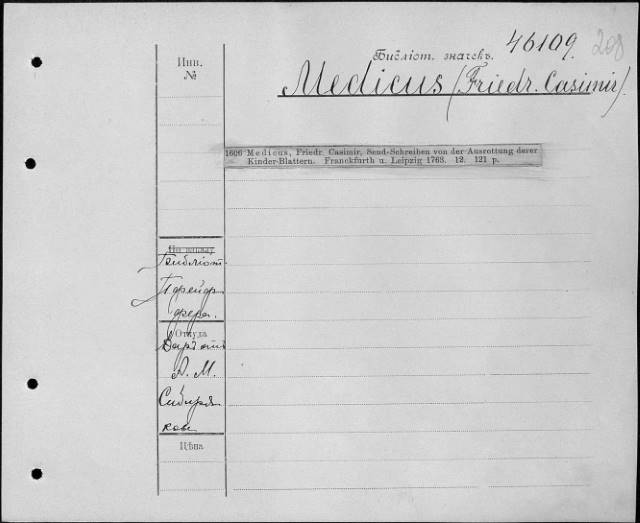 46109. 208
Библіот. значекъ.
Инв.
№
Medicus (Friedr. Casimir).
1606 Medicus, Friedr. Casimir, Send-Schreiben von der Ausrottung derer
Kinder-Blattern. Franckfurth u. Leipzig 1763. 12. 121 p.
По какому
Библіот.
Прейф
фера.
Откуда
Варъ отъ
А. М.
Сибиря
кова
Цѣна